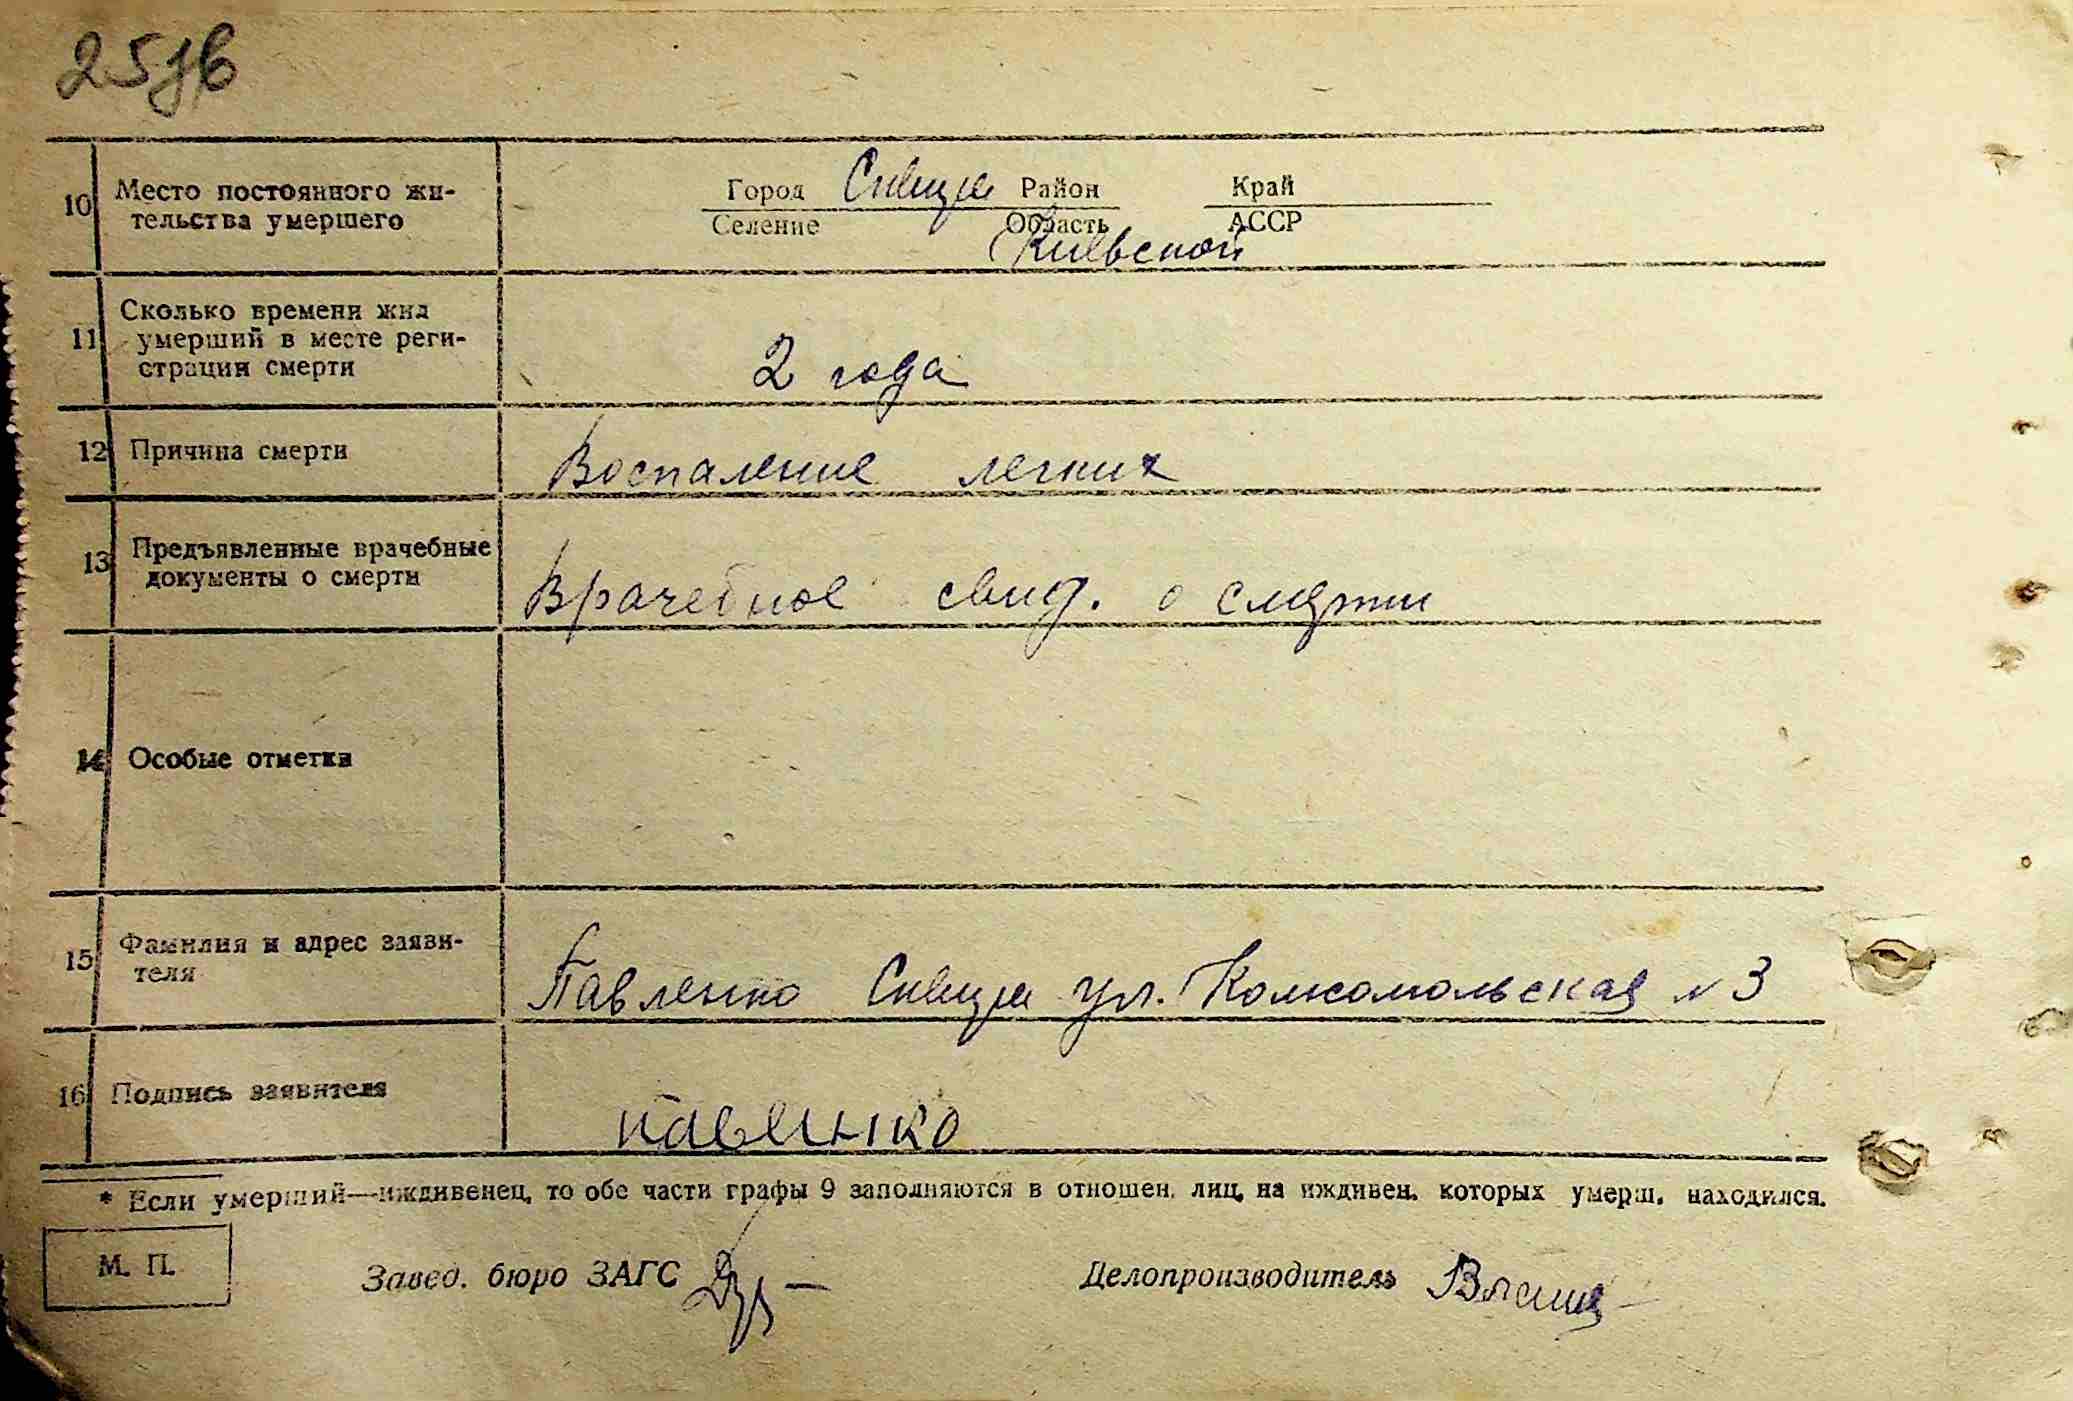 25зв
10 Место постоянного жи-
тельства умершего
Город Сквира Район Край
Селение Область АССР
Киевской
11 Сколько времени жил
умерший в месте реги-
страции смерти
2 года
12 Причина смерти
Воспаление легких
13 Предъявленные врачебные
документы о смерти
Врачебное свид. о смерти
14 Особые отметки
15 Фамилия и адрес заяви-
теля
Павленко Сквира ул. Комсомольская N 3
16 Подпись заявителя
Павленко
* Если умерший—иждивенец, то обе части графы 9 заполняются в отношен. лиц, на иждивен. которых умерш. находился.
М. П.
Завед. бюро ЗАГС
Делопроизводитель